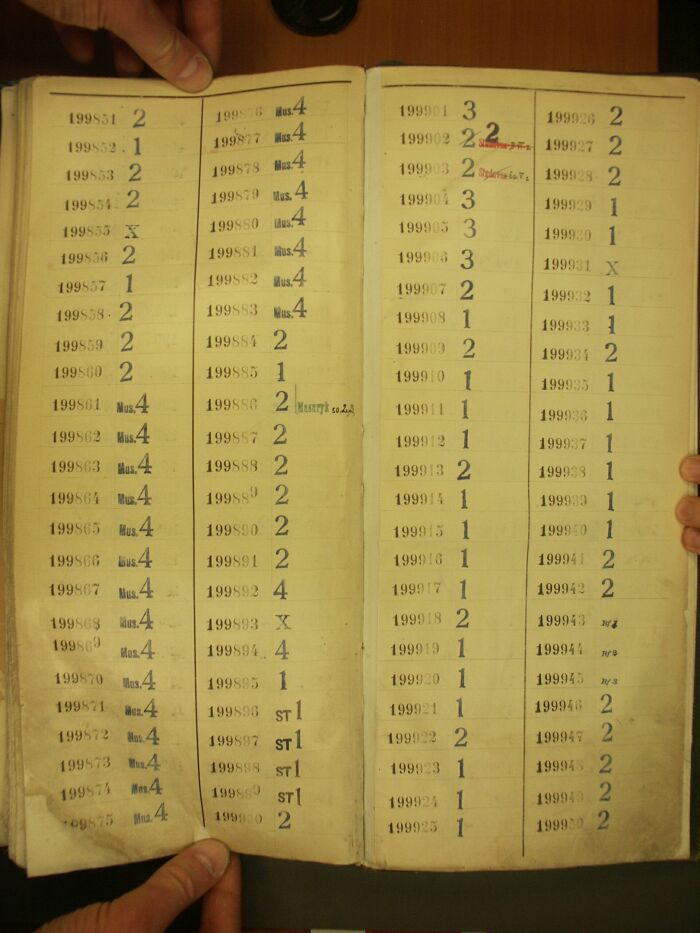 199851 2
199852 1
199853 2
199854 2
199855 X
199856 2
199857 1
199858 2
199859 2
199860 2
199861 Mus.4
199862 Mus.4
199863 Mus.4
199864 Mus.4
199865 Mus.4
199866 Mus.4
199867 Mus.4
199868 Mus.4
199869 Mus.4
199870 Mus.4
199871 Mus.4
199872 Mus.4
199873 Mus.4
199874 Mus.4
199875 Mus.4
199876 Mus.4
199877 Mus.4
199878 Mus.4
199879 Mus.4
199880 Mus.4
199881 Mus.4
199882 Mus.4
199883 Mus.4
199884 2
199885 1
199886 2 Masaryk
199887 2
199888 2
199889 2
199890 2
199891 2
199892 4
199893 X
199894 4
199895 1
199896 ST 1
199897 ST 1
199898 ST 1
199899 ST 1
199900 2
199901 3
199902 2 2
199903 2
199904 3
199905 3
199906 3
199907 2
199908 1
199909 2
199910 1
199911 1
199912 1
199913 2
199914 1
199915 1
199916 1
199917 1
199918 2
199919 1
199920 1
199921 1
199922 2
199923 1
199924 1
199925 1
199926 2
199927 2
199928 2
199929 1
199930 1
199931 X
199932 1
199933 1
199934 2
199935 1
199936 1
199937 1
199938 1
199939 1
199940 1
199941 2
199942 2
199943
199944
199945
199946 2
199947 2
199948 2
199949 2
199950 2